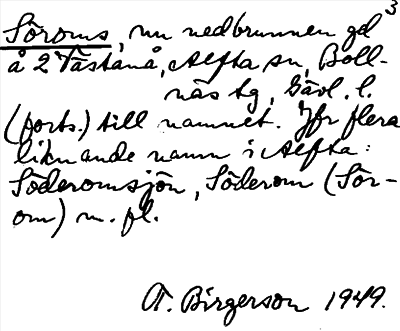 3
Söroms, nu nedbrunnen gd
å 2 Tästånå, Alfta sn, Boll-
näs tg, Gävl. l.
(forts.) till namnet. Jfr flera
liknande namn i Alfta:
Söderomsjön, Söderom (Sör-
om) m. fl.
A. Birgerson 1949.